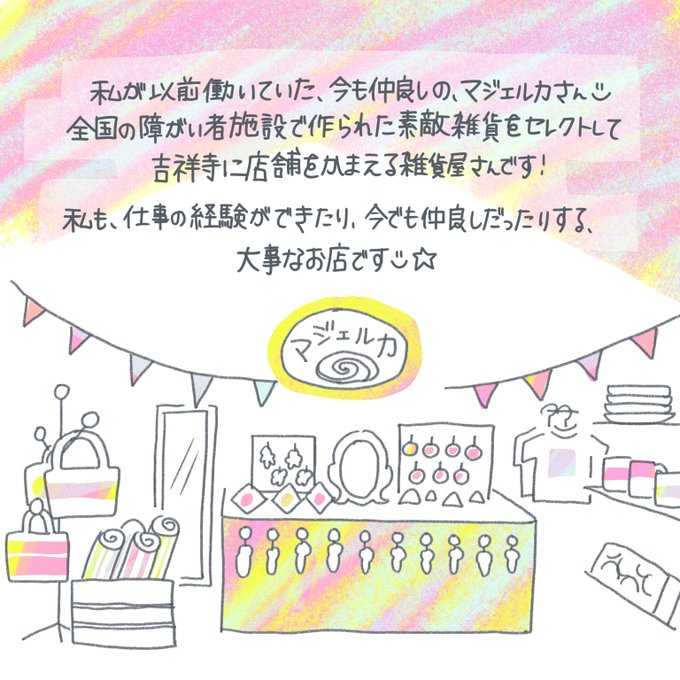 私が以前働いていた、今も仲良しの、マジェルカさん
全国の障がい者施設で作られた素敵雑貨をセレクトして
吉祥寺に店舗をかまえる雑貨屋さんです!
私も、仕事の経験ができたり、今でも仲良しだったりする、
大事なお店です☆
マジェルカ